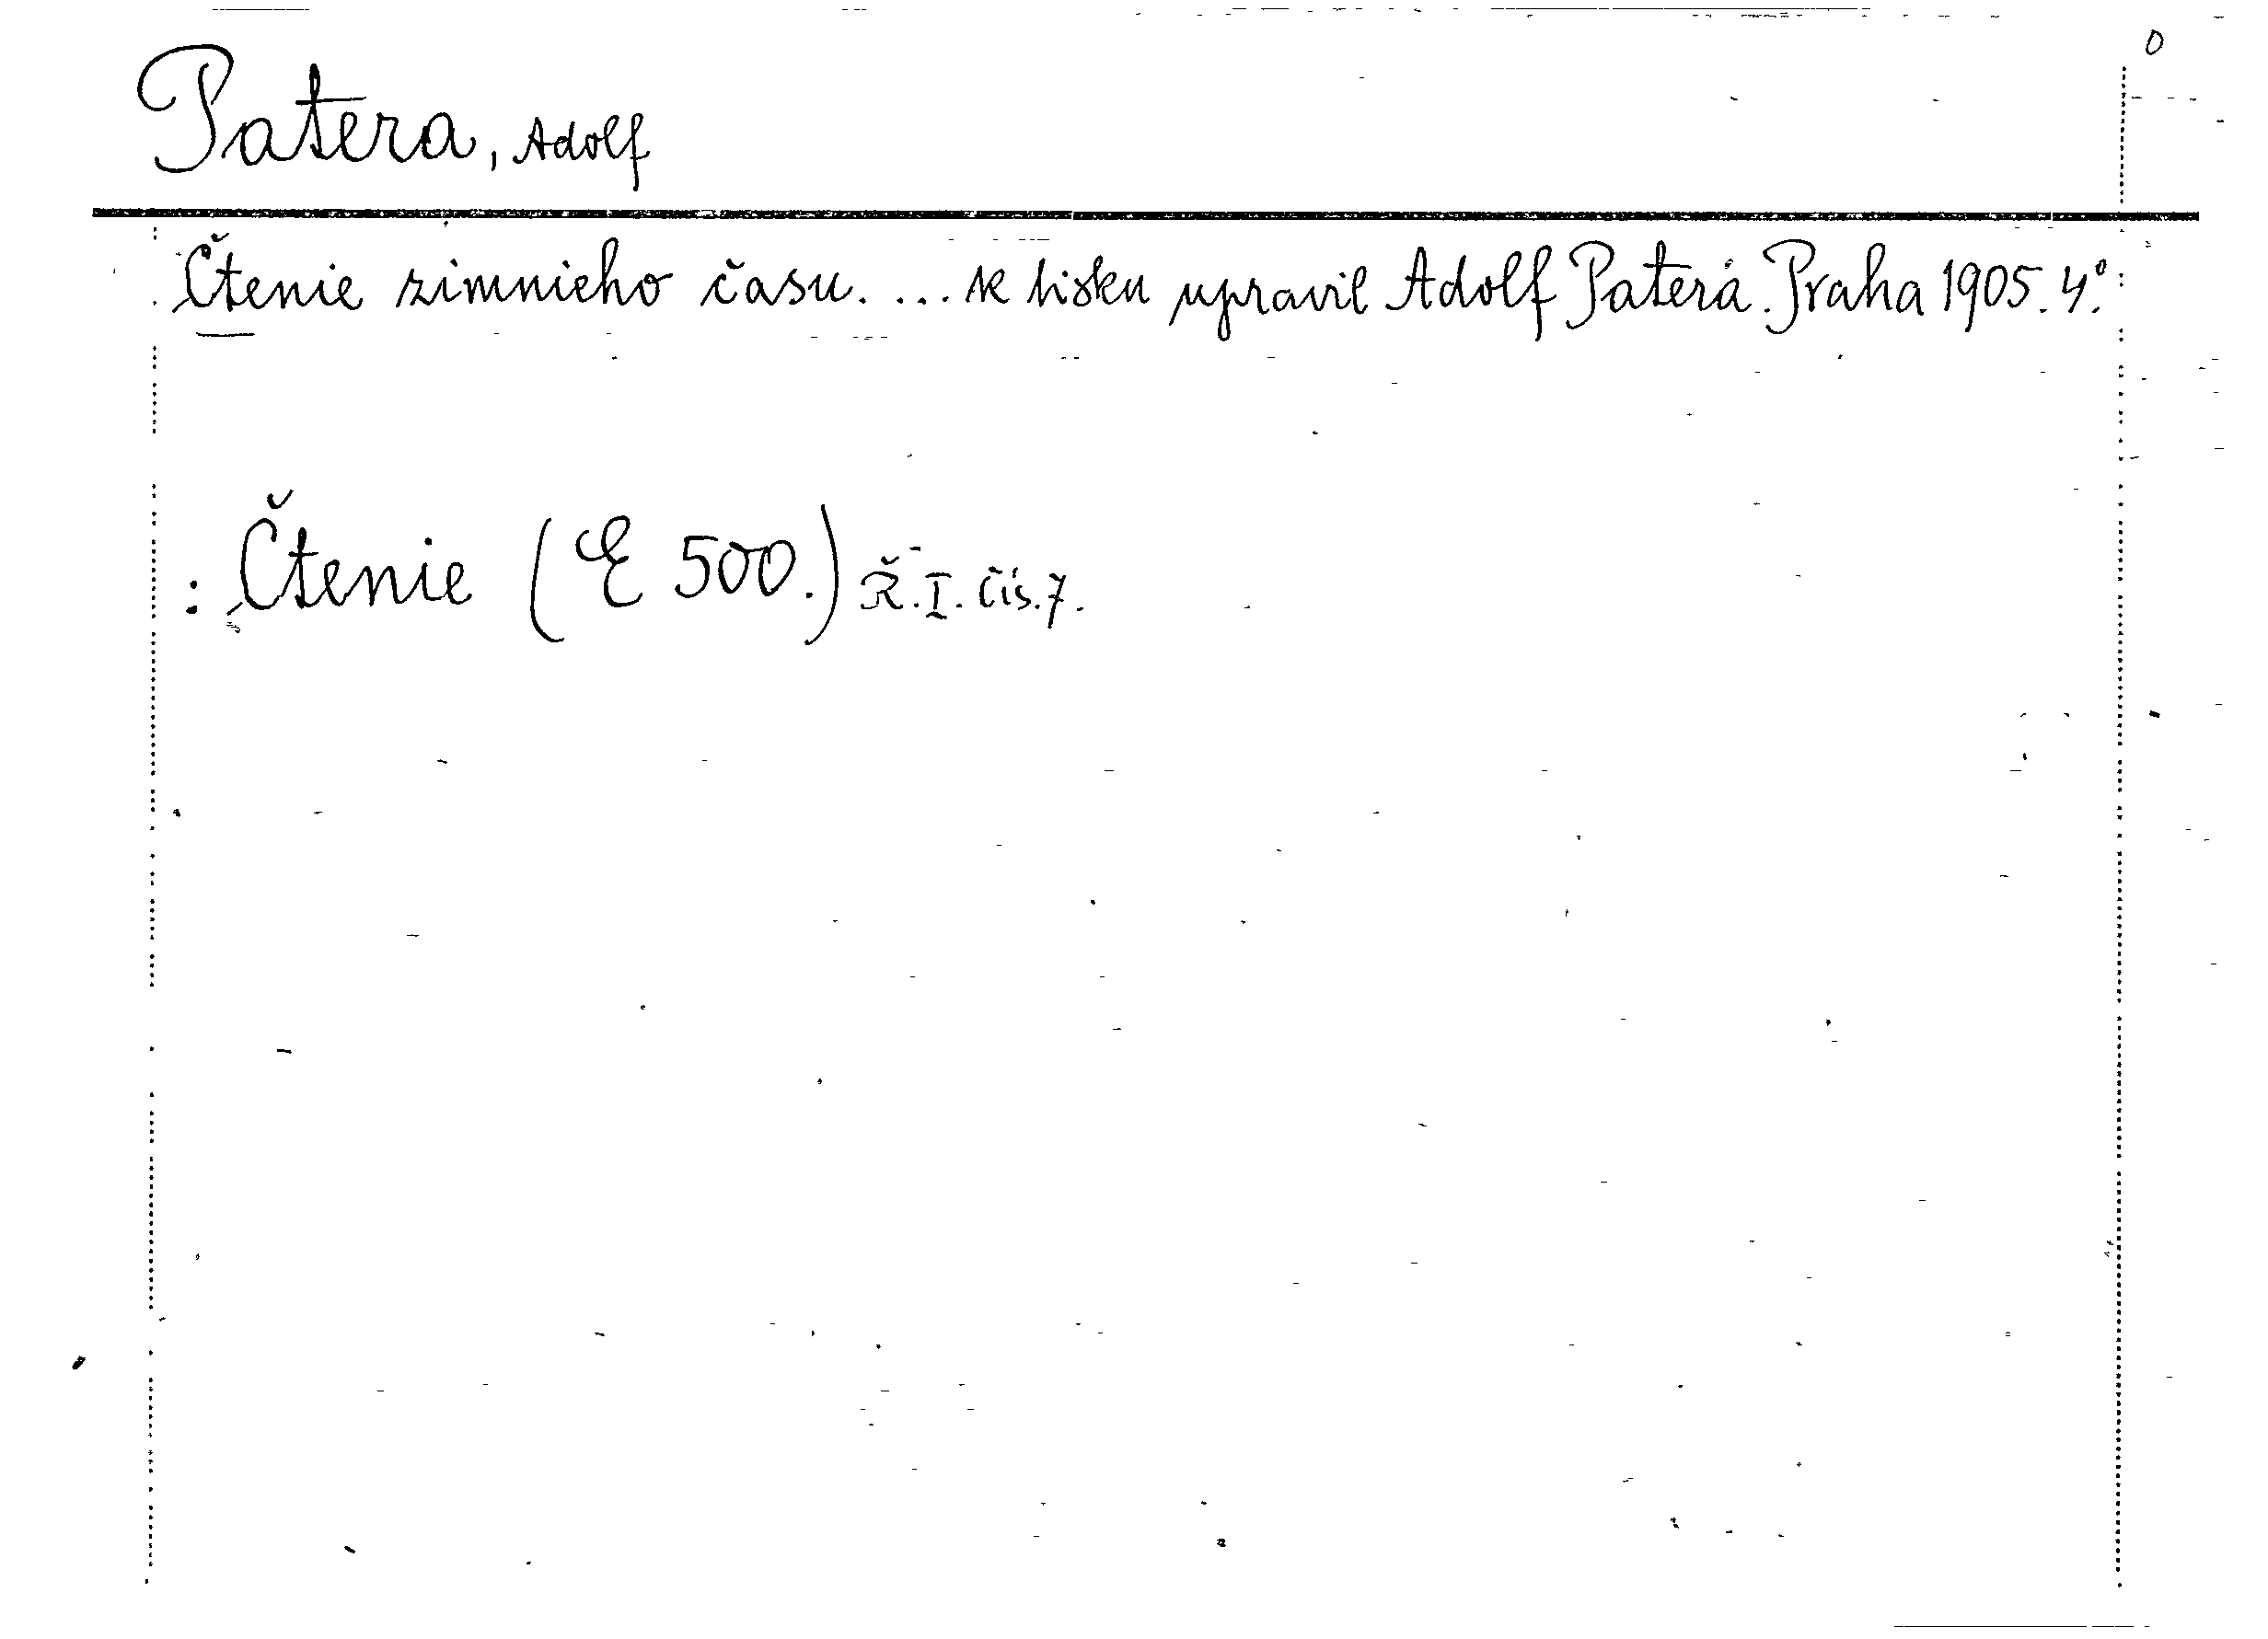 0
Patera, Adolf
Čtenie zimnieho času. ... k tisku upravil Adolf Patera. Praha 1905. 4°.
: Čtenie (E 500.) Ř. I. čís. 7.